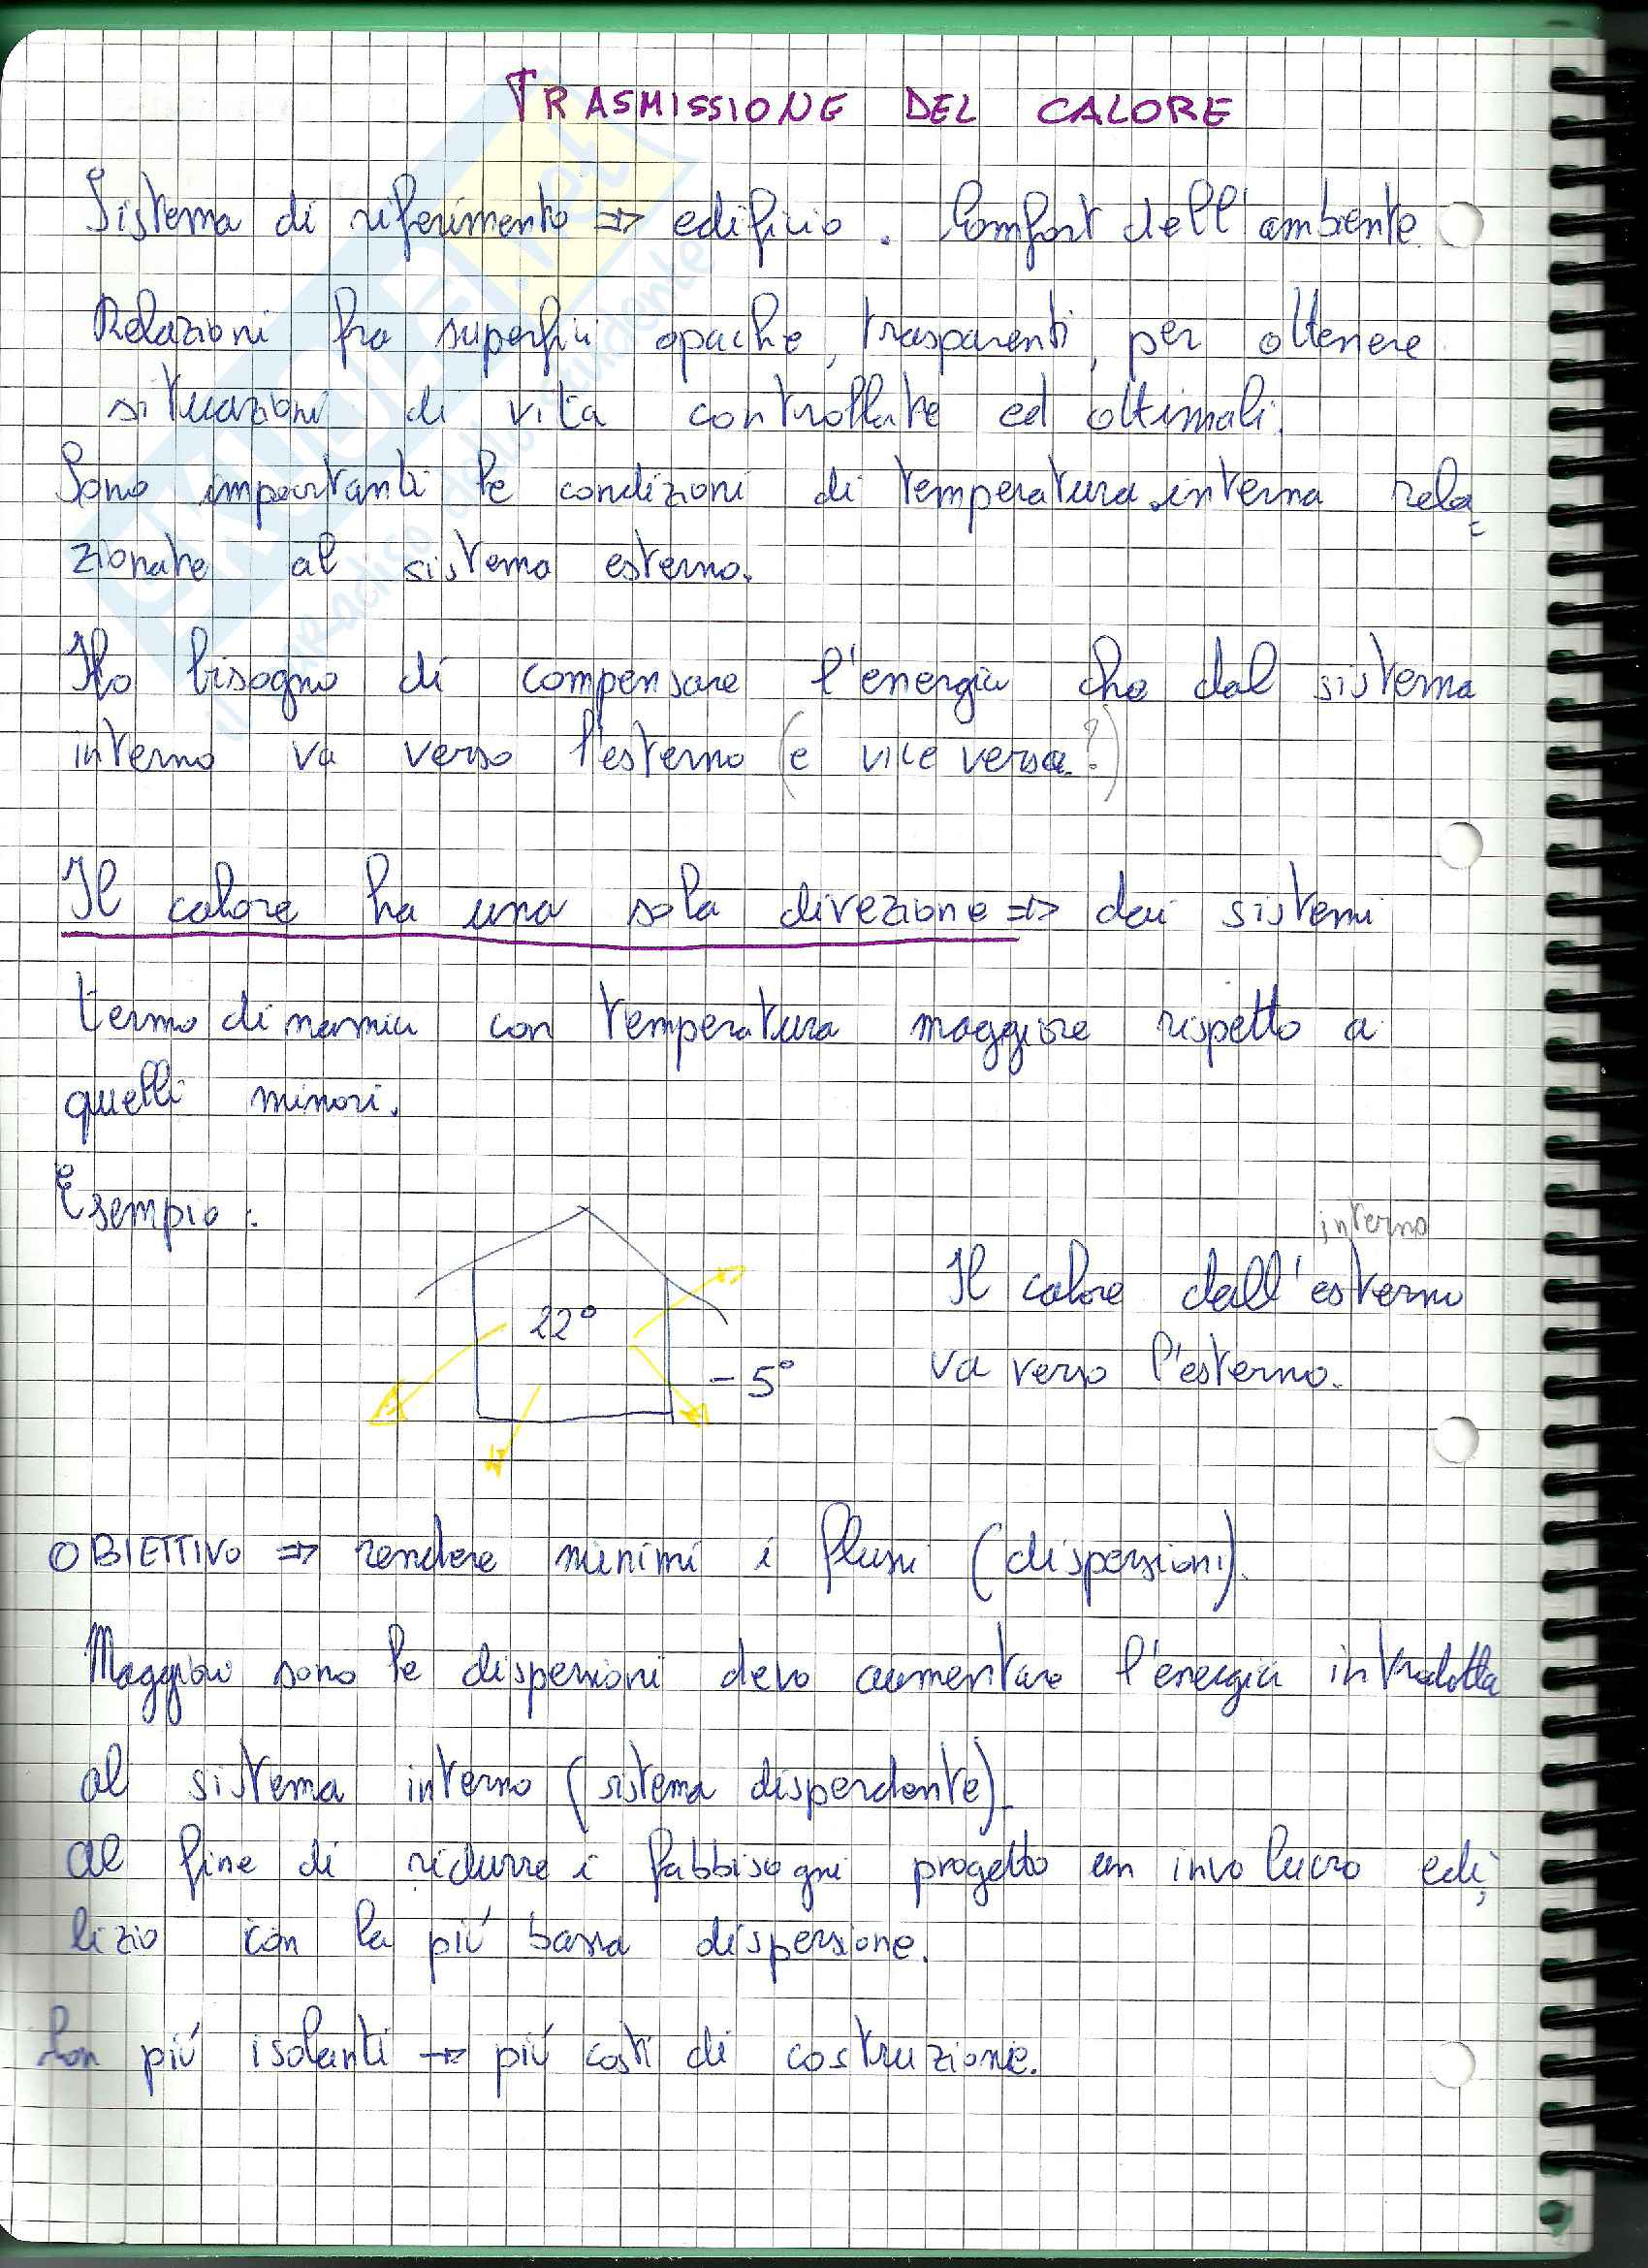 TRASMISSIONE DEL CALORE
Sistema di riferimento => edificio. Comfort dell'ambiente.
Relazioni fra superfici opache, trasparenti, per ottenere
situazioni di vita controllate ed ottimali.
Sono importanti le condizioni di temperatura interna rela=
zionate al sistema esterno.
Ho bisogno di compensare l'energia che dal sistema
interno va verso l'esterno (e vice versa?)
Il calore ha una sola direzione => dai sistemi
termodinamici con temperatura maggiore rispetto a
quelli minori.
Esempio:
22°
-5°
interno
Il calore dall'esterno
va verso l'esterno.
OBIETTIVO => rendere minimi i flussi (dispersioni).
Maggiori sono le dispersioni devo aumentare l'energia introdotta
al sistema interno (sistema disperdente).
al fine di ridurre i fabbisogni progetto un involucro edi=
lizio con la più bassa dispersione.
Con più isolanti -> più costi di costruzione.
SKUOLA.net
il PARAdiso dello studente